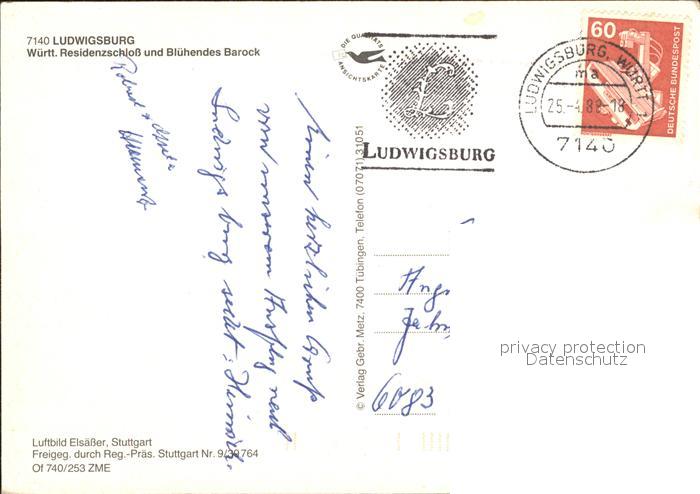 7140 LUDWIGSBURG
Württ. Residenzschloß und Blühendes Barock
DIE QUALITÄTS
ANSICHTSKARTE
LUDWIGSBURG
LUDWIGSBURG, WÜRTT 1
ma
25.-4.88-18
7140
60
DEUTSCHE BUNDESPOST
Einen herzlichen Gruß
von unserem Ausflug nach
Ludwigsburg
Robert +
© Verlag Gebr. Metz, 7400 Tübingen, Telefon (07071) 31051
6083
privacy protection
Datenschutz
Luftbild Elsäßer, Stuttgart
Freigeg. durch Reg.-Präs. Stuttgart Nr. 9/39764
Of 740/253 ZME